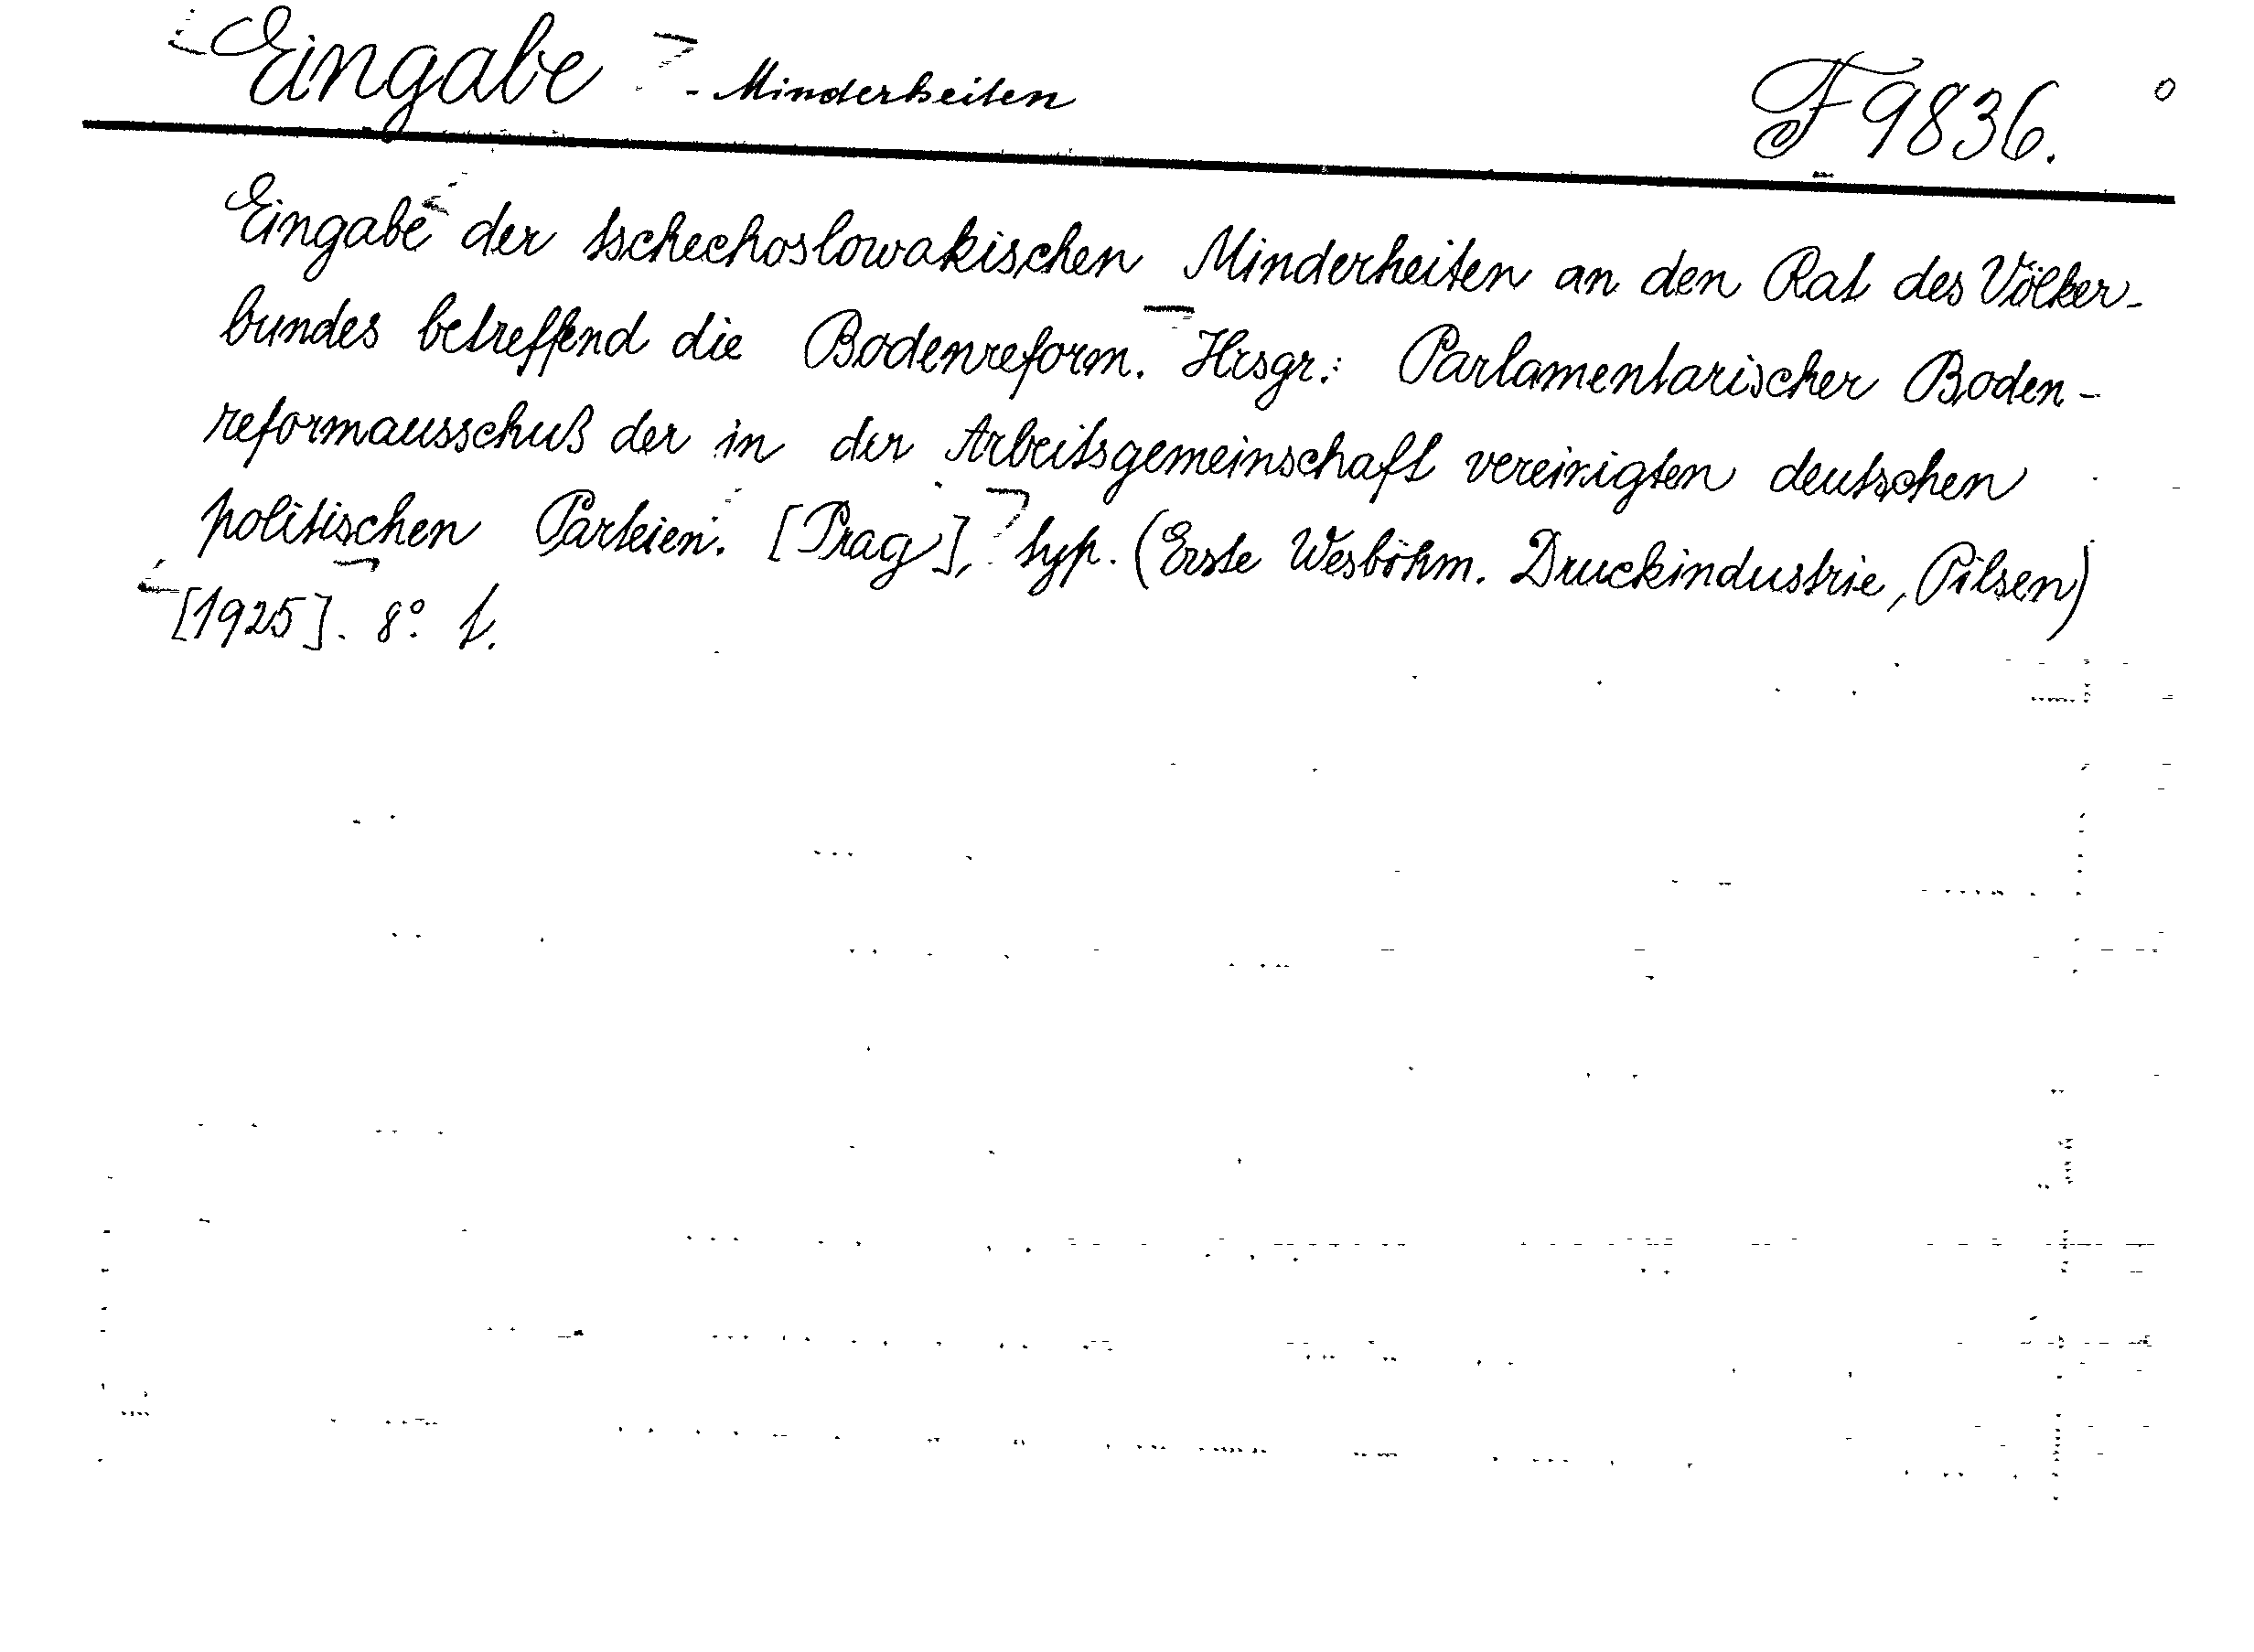 Eingabe - Minderheiten F 9836.
Eingabe der tschechoslowakischen Minderheiten an den Rat des Völker-
bundes betreffend die Bodenreform. Hrsgr.: Parlamentarischer Boden-
reformausschuß der in der Arbeitsgemeinschaft vereinigten deutschen
politischen Parteien. [Prag], typ. (Erste Wesböhm. Druckindustrie, Pilsen)
[1925]. 8°.